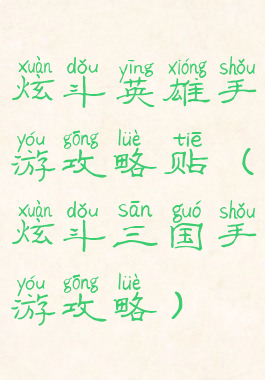 xuàn dǒu yīng xióng shǒu
炫斗英雄手
yóu gōng lüè tiē
游攻略贴（
xuàn dǒu sān guó shǒu
炫斗三国手
yóu gōng lüè
游攻略）